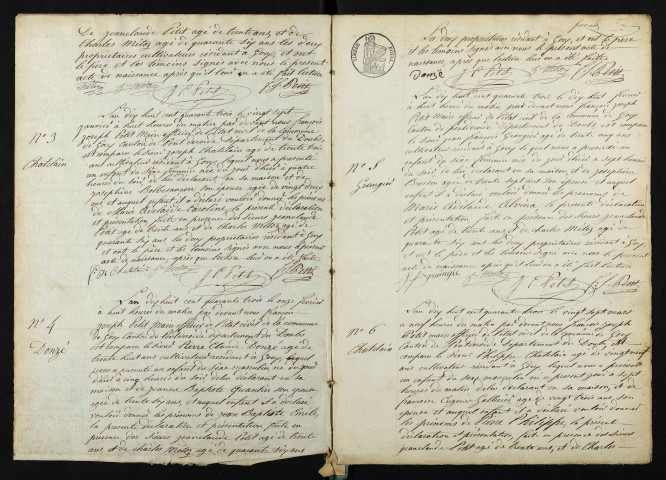 De jeanclaude Petit agé de trente ans, et de
Charles Metoz agé de quarante six ans les deux
propriétaires cultivateurs résidant à Goux, et ont
le père et les témoins signé avec nous le présent
acte de naissance après qu'il leur en a été fait lecture
Jc Petit
N° 3
Chatelain
L'an dix huit cent quarante trois le vingt sept
janvier à huit heures du matin par devant nous françois
joseph Petit Maire officier de l'état civil de la commune
de Goux Canton de Département du Doubs,
est comparu Chatelain agé de trente trois
ans cultivateur résidant à Goux, lequel nous a présenté
un enfant du sexe féminin né du jour d'hier à quatre
heures du soir de lui déclarant, en sa maison et de
Josephine son épouse agée de vingt deux
ans et auquel enfant il a déclaré vouloir donner les prénoms
de Marie Adélaide Caroline, la présente déclaration
et présentation faite en présence des sieurs jeanclaude
Petit agé de trente ans et de Charles Metoz agé de
quarante six ans les deux propriétaires résidant à Goux
et ont le père et les témoins signé avec nous le présent
acte de naissance, après que lecture leur en a été faite
Jc Petit
N° 4
Donzé
L'an dix huit cent quarante trois le onze février
à huit heures du matin par devant nous françois
joseph Petit Maire officier de l'état civil de la commune
de Goux canton de Département du Doubs
est comparu le sieur Claude Donzé agé de
trente huit ans cultivateur résidant à Goux, lequel
nous a présenté un enfant du sexe masculin né du jour
d'hier à cinq heures du soir de lui déclarant en sa
maison et de jeanne Baptiste son épouse
agée de trente six ans, et auquel enfant il a déclaré
vouloir donner les prénoms de jean Baptiste Emile,
la présente déclaration et présentation faite en
présence des sieurs jeanclaude Petit agé de trente
ans, et de Charles Metoz agé de quarante six ans
les deux propriétaires résidant à Goux, et ont le père
et les témoins signé avec nous le présent acte de
naissance, après que lecture leur en a été faite
Donzé
Jc Petit
N° 5
Grangier
L'an dix huit cent quarante trois le dix huit
à huit heures du matin par devant nous françois joseph
Petit Maire officier de l'état civil de la commune de Goux
canton de Département du Doubs est comparu
le sieur françois Grangier agé de trente ans
cultivateur résidant à Goux lequel nous a présenté un
enfant du sexe féminin née du jour d'hier à sept heures
du soir de lui déclarant en sa maison, et de josephine
agée de trente ans son épouse et auquel
enfant il a déclaré vouloir donner les prénoms de
Marie Adélaide Alvina, la présente déclaration
et présentation faite en présence des sieurs jeanclaude
Petit agé de trente ans et de Charles Metoz agé de
quarante six ans les deux propriétaires résidant à Goux
et ont le père et les témoins signé avec nous le présent
acte de naissance, après qu'il leur en a été fait lecture
Jc Petit
N° 6
Chatelain
L'an dix huit cent quarante trois le vingt sept mars
à neuf heures du matin par devant nous françois joseph
Petit maire officier de l'état civil de la commune de Goux
Canton de Département du Doubs, est
comparu le sieur Philippe Chatelain agé de vingt neuf
ans cultivateur résidant à Goux lequel nous a présenté
un enfant du sexe masculin né
heures du matin de lui déclarant en sa maison, et de
Eugénie agée de vingt trois ans, son
épouse et auquel enfant il a déclaré vouloir donner
les prénoms de Pierre Philippe, la présente
déclaration et présentation, faite en présence des sieurs
jeanclaude Petit agé de trente ans, et de Charles